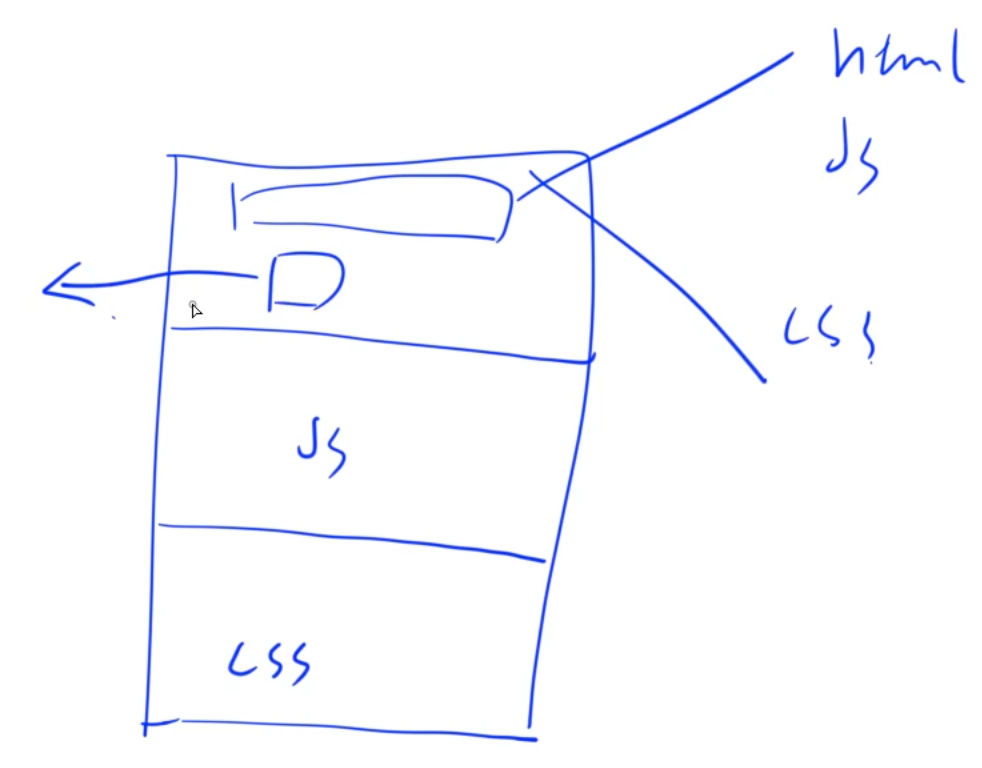 html
Js
css
Js
css